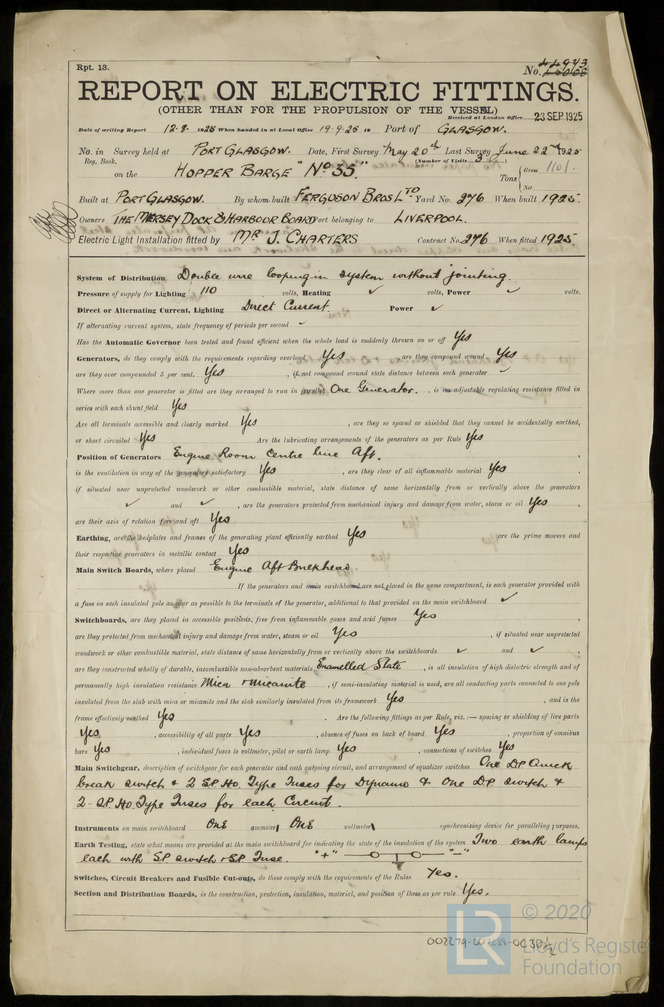 Rpt. 13.
No. 44943
REPORT ON ELECTRIC FITTINGS.
(OTHER THAN FOR THE PROPULSION OF THE VESSEL)
Received at London Office 23 SEP 1925
Date of writing Report 12.9.1925 When handed in at Local Office 19.9.25 19 Port of GLASGOW.
No. in Survey held at PORT GLASGOW. Date, First Survey May 20th Last Survey June 22nd 1925
Reg. Book. (Number of Visits 3
on the HOPPER BARGE "No 35." Tons { Gross 1101.
Net
Built at PORT GLASGOW. By whom built FERGUSON BROS LTD Yard No. 276 When built 1925.
Owners THE MERSEY DOCK & HARBOUR BOARD Port belonging to LIVERPOOL.
Electric Light Installation fitted by MR J. CHARTERS Contract No. 276 When fitted 1925.
System of Distribution Double wire looping in system without jointing.
Pressure of supply for Lighting 110 volts, Heating ✓ volts, Power ✓ volts.
Direct or Alternating Current, Lighting Direct Current. Power ✓
If alternating current system, state frequency of periods per second ✓
Has the Automatic Governor been tested and found efficient when the whole load is suddenly thrown on or off Yes
Generators, do they comply with the requirements regarding overload Yes , are they compound wound Yes
are they over compounded 5 per cent. Yes , if not compound wound state distance between each generator ✓
Where more than one generator is fitted are they arranged to run in parallel One Generator. , is an adjustable regulating resistance fitted in
series with each shunt field Yes
Are all terminals accessible and clearly marked Yes , are they so spaced or shielded that they cannot be accidentally earthed,
or short circuited Yes Are the lubricating arrangements of the generators as per Rule Yes
Position of Generators Engine Room Centre line Aft.
is the ventilation in way of the generators satisfactory Yes , are they clear of all inflammable material Yes
if situated near unprotected woodwork or other combustible material, state distance of same horizontally from or vertically above the generators
✓ and ✓ , are the generators protected from mechanical injury and damage from water, steam or oil Yes
are their axis of rotation fore and aft Yes
Earthing, are the bedplates and frames of the generating plant efficiently earthed Yes are the prime movers and
their respective generators in metallic contact Yes
Main Switch Boards, where placed Engine Aft Bulkhead.
If the generators and main switchboard are not placed in the same compartment, is each generator provided with
a fuse on each insulated pole as near as possible to the terminals of the generator, additional to that provided on the main switchboard ✓
Switchboards, are they placed in accessible positions, free from inflammable gases and acid fumes Yes
are they protected from mechanical injury and damage from water, steam or oil Yes , if situated near unprotected
woodwork or other combustible material, state distance of same horizontally from or vertically above the switchboards ✓ and ✓
are they constructed wholly of durable, incombustible non-absorbent materials Enamelled Slate , is all insulation of high dielectric strength and of
permanently high insulation resistance Mica + Micanite , if semi-insulating material is used, are all conducting parts connected to one pole
insulated from the slab with mica or micanite and the slab similarly insulated from its framework Yes , and is the
frame effectively earthed Yes . Are the following fittings as per Rule, viz.:— spacing or shielding of live parts
Yes , accessibility of all parts Yes , absence of fuses on back of board Yes , proportion of omnibus
bars Yes , individual fuses to voltmeter, pilot or earth lamp Yes , connections of switches Yes
Main Switchgear, description of switchgear for each generator and each outgoing circuit, and arrangement of equalizer switches One DP Quick
break switch & 2 S.P. Ho. Type Fuses for Dynamo & One DP switch &
2-S.P. Ho. Type Fuses for each Circuit.
Instruments on main switchboard ONE ammeter ONE voltmeter synchronising device for paralleling purposes.
Earth Testing, state what means are provided at the main switchboard for indicating the state of the insulation of the system Two earth lamps
each with S.P. switch + S.P. Fuse. "+" "–"
Switches, Circuit Breakers and Fusible Cut-outs, do these comply with the requirements of the Rules Yes.
Section and Distribution Boards, is the construction, protection, insulation, material, and position of these as per rule Yes.
LR © 2020
Lloyd's Register
Foundation